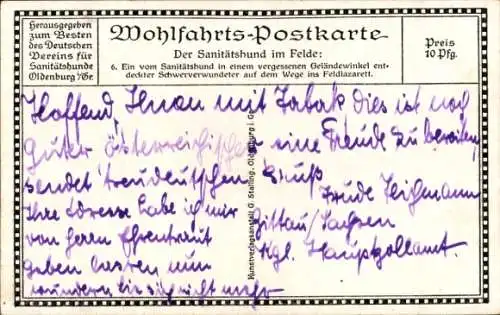 Herausgegeben
zum Besten
des Deutschen
Vereins für
Sanitätshunde
Oldenburg i/Gr.
Wohlfahrts-Postkarte
Der Sanitätshund im Felde:
6. Ein vom Sanitätshund in einem vergessenen Geländewinkel ent-
deckter Schwerverwundeter auf dem Wege ins Feldlazarett.
Preis
10 Pfg.
Hoffend, Ihnen mit Tabak dies ist noch
guter österreichischer eine Freude zu bereiten
sendet treudeutschen Gruß
Ihre Adresse habe ich mir
von Herrn Ehrentraut
geben lassen nun
wundern Sie sich nicht mehr
Trude
Zittau/Sachsen
Kgl. Hauptzollamt.
Kunstverlagsanstalt G. Stalling, Oldenburg i. Gr.